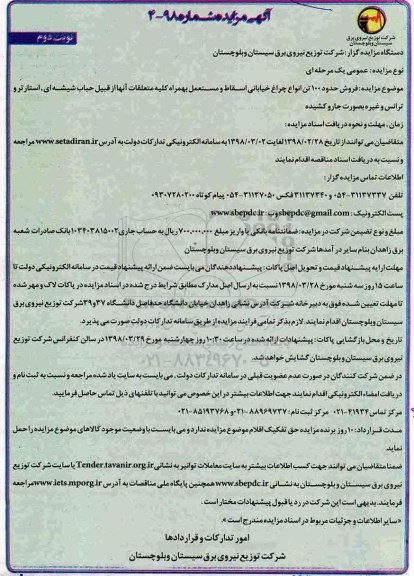 آگهی مزایده شماره ۹۸-۴
نوبت دوم
شرکت توزیع نیروی برق
سیستان و بلوچستان
دستگاه مزایده گزار: شرکت توزیع نیروی برق سیستان وبلوچستان
نوع مزایده: عمومی یک مرحله ای
موضوع مزایده: فروش حدود ۱۰۰ تن انواع چراغ خیابانی اسقاط و مستعمل بهمراه کلیه متعلقات آنها از قبیل حباب شیشه ای، استارتر و
ترانس و غیره بصورت جارو کشیده
زمان، مهلت و نحوه دریافت اسناد مزایده:
متقاضیان می توانند از تاریخ ۱۳۹۸/۰۲/۲۸ لغایت ۱۳۹۸/۰۳/۰۲ به سامانه الکترونیکی تدارکات دولت به آدرس www.setadiran.ir مراجعه
و نسبت به دریافت اسناد مناقصه اقدام نمایند
اطلاعات تماس مزایده گزار:
تلفن ۳۱۱۳۷۳۳۷-۰۵۴ و ۳۱۱۳۷۳۴۰ فکس ۳۱۱۳۷۰۵۰-۰۵۴ پیام کوتاه ۰۹۳۰۷۲۸۰۲۰۰
پست الکترونیک: sbepdc@gmail.com وب: www.sbepdc.ir
مبلغ و نوع تضمین شرکت در مزایده: ضمانتنامه بانکی یا واریز مبلغ ۷۰۰,۰۰۰,۰۰۰ ریال به حساب جاری ۰۱۰۳۴۰۳۸۱۵۰۰۲ بانک صادرات شعبه
برق زاهدان بنام سایر در آمدها شرکت توزیع نیروی برق سیستان وبلوچستان
مهلت ارایه پیشنهاد قیمت و تحویل اصل پاکات: پیشنهاددهندگان می بایست ضمن ارائه پیشنهاد قیمت در سامانه الکترونیکی دولت تا
ساعت ۱۵ روز سه شنبه مورخ ۱۳۹۸/۰۳/۲۸ نسبت به ارسال اصل مدارک مطابق شرایط درج شده در اسناد مزایده در پاکات لاک و مهر شده
تا مهلت تعیین شده فوق به دبیر خانه شرکت آدرس نشانی زاهدان خیابان دانشگاه حدفاصل دانشگاه ۳۷ و ۳۹ شرکت توزیع نیروی برق
سیستان وبلوچستان اقدام نمایند. لازم بذکر تمامی فرایند مزایده از طریق سامانه تدارکات دولت صورت می پذیرد.
تاریخ و محل بازگشایی پاکات: پیشنهادات ارائه شده در ساعت ۱۰:۳۰ روز چهارشنبه مورخ ۱۳۹۸/۰۳/۲۹ در سالن کنفرانس شرکت توزیع
نیروی برق سیستان وبلوچستان گشایش خواهد شد.
در ضمن شرکت کنندگان در صورت عدم عضویت قبلی در سامانه تدارکات دولت. می بایست به سایت یاد شده مراجعه و نسبت به ثبت نام و
دریافت امضاء الکترونیکی اقدام نمایند جهت اطلاعات بیشتر در این خصوص می توانید با تلفنهای ذیل تماس حاصل فرمایید.
مرکز تماس ۴۱۹۳۴-۰۲۱ مرکز ثبت نام: ۸۸۹۶۹۷۳۷-۰۲۱ و ۸۵۱۹۳۷۶۸-۰۲۱
مدت قرارداد: ۱۰ روز برنده مزایده حق تفکیک اقلام موضوع مزایده ندارد و می بایست با وضعیت موجود کالاهای موضوع مزایده را حمل
نماید
ضمنا متقاضیان می توانند جهت کسب اطلاعات بیشتر به سایت معاملات توانیر به نشانی Tender.tavanir.org.ir یا سایت شرکت توزیع
نیروی برق سیستان و بلوچستان به نشانی www.sbepdc.ir همچنین پایگاه ملی مناقصات به آدرس www.iets.mporg.ir مراجعه
فرمایند. بدیهی است این شرکت در رد یا قبول پیشنهادات مختار است.
«سایر اطلاعات و جزئیات مربوط در اسناد مزایده مندرج است».
امور تدارکات و قراردادها
شرکت توزیع نیروی برق سیستان وبلوچستان